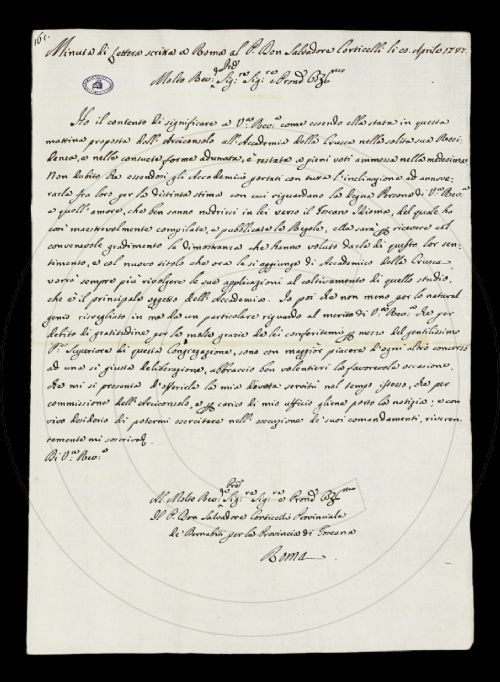 161.
Minuta di Lettera scritta a Roma al P. Don Salvadore Corticelli li 20. Aprile 1747.
Molto Rev:do Sig:re Sig:re e Prone
Ho il contento di significare a V:ra Rev:a come essendo ella stata in questa
mattina proposta dall' Arciconsolo all' Accademia della Crusca nella solita sua Resi-
denza, e nelle consuete forme adunata, è restata a pieni voti ammessa nella medesima.
Non dubito che essendosi gli Accademici portati con tutta l'inclinazione ad annove-
rarla fra loro per la distinta stima con cui riguardano la degna Persona di V:ra Rev:a
e quell' amore, che ben sanno nudrirsi in lei verso il Toscano Idioma, del quale ha
così maestrevolmente compilate, e pubblicate le Regole, ella sarà per ricevere col
convenevole gradimento la dimostranza che hanno voluto darle di questo lor sen-
timento, e col nuovo titolo che ora le si aggiunge di Accademico della Crusca
vorrà sempre più rivolgere le sue applicazioni al coltivamento di quello studio,
che è il principale oggetto dell' Accademia. Io poi che non meno per la natural
genio risvegliato in me da un particolare riguardo al merito di V:ra Rev:a che per
debito di gratitudine per le molte grazie da lei conferitemi per mezzo del gentilissimo
P:re Superiore di questa Congregazione, sono con maggior piacere d'ogni altro concorso
ad una sì giusta deliberazione, abbraccio ben volentieri la favorevole occasione,
che mi si presenta d'offerirle la mia devota servitù nel tempo istesso, che per
commissione dell' Arciconsolo, e per carico di mio uffizio gliene porto la notizia; e con
vivo desiderio di potermi esercitare nell' esecuzione de' suoi comandamenti, riveren-
temente mi soscrivo
Di V:ra Rev:a
Al Molto Rev:do Sig:re Sig:re e Prone
Il P. Don Salvadore Corticelli Provinciale
de' Bernabiti per la Provincia di Toscana
Roma